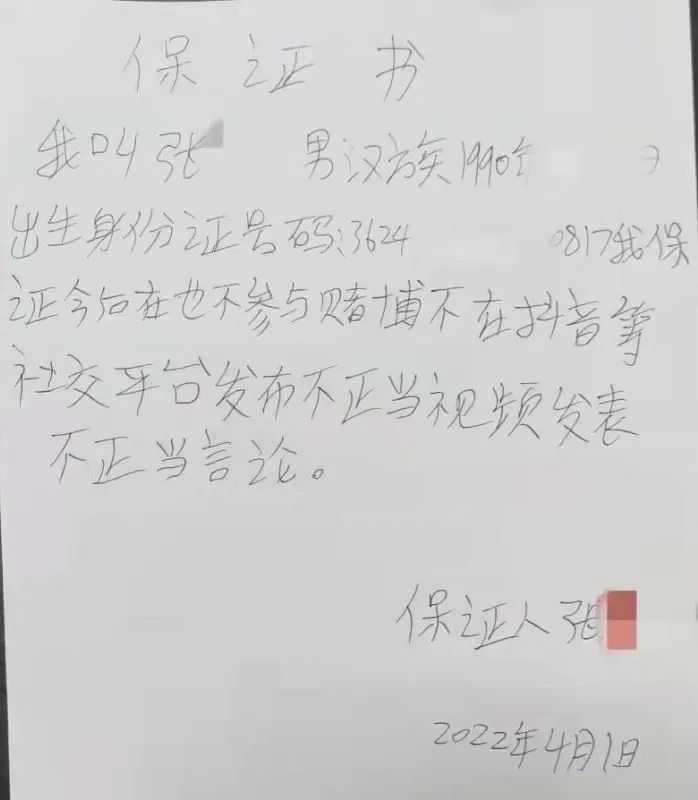 保证书
我叫张 男汉族1990年 日
出生身份证号码:3624 0817我保
证今后在也不参与赌博不在抖音等
社交平台发布不正当视频发表
不正当言论。
保证人张
2022年4月1日